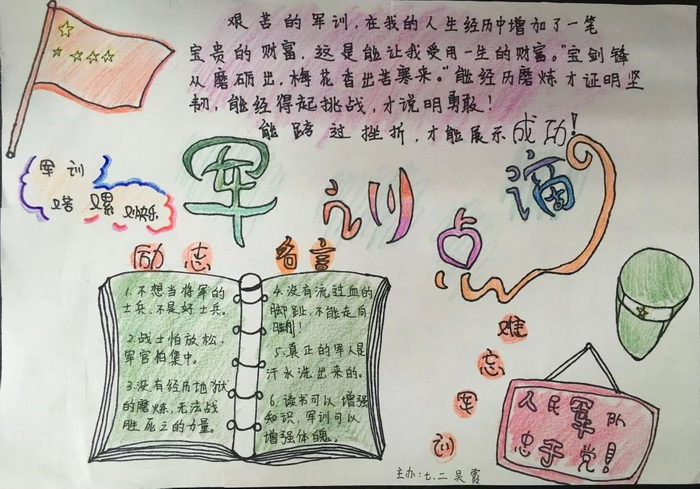 艰苦的军训,在我的人生经历中增加了一笔
宝贵的财富,这是能让我受用一生的财富。"宝剑锋
从磨砺出,梅花香出苦寒来。"能经历磨炼才证明坚
韧,能经得起挑战,才说明勇敢!
能跨过挫折,才能展示成功!
军训
又苦又累又快乐
军训点滴
励志名言
1.不想当将军的
士兵,不是好士兵。
2.战士怕放松,
军官怕集中。
3.没有经历地狱
的磨炼,无法战
胜死亡的力量。
4.没有流过血的
脚趾,不能走向
胜利!
5.真正的军人是
汗水洗出来的。
6.读书可以增强
知识,军训可以
增强体魄。
难忘军训
人民军队
忠于党!
主办:七.二吴霞